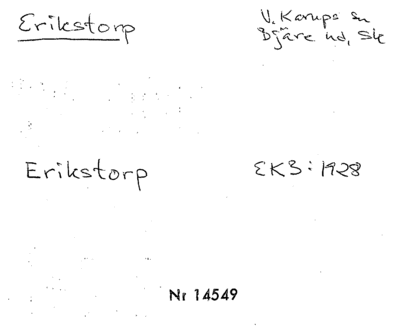 Erikstorp
V. Karups sn
Bjäre hd, Sk
Erikstorp
EKB: 1928
Nr 14549